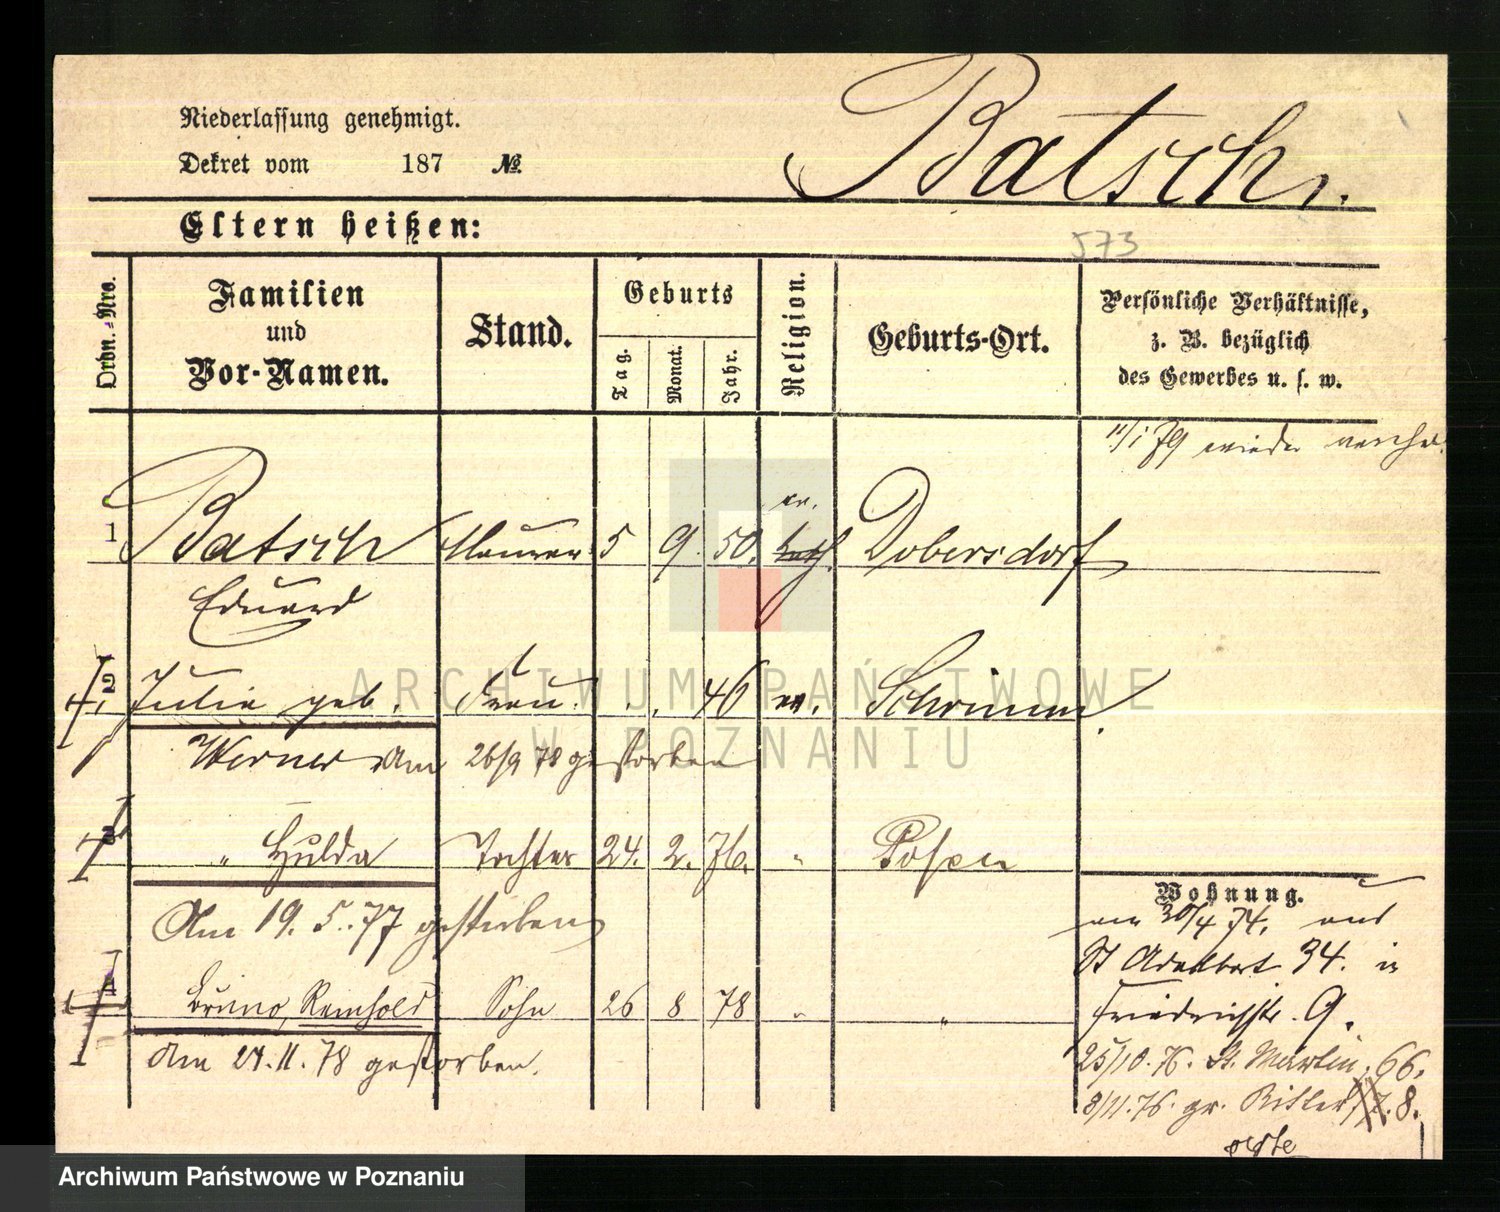 Niederlassung genehmigt.
Dekret vom 187 №
Batsch.
Eltern heißen:
573
Ordn.-Nro.
Familien
und
Vor-Namen.
Stand.
Geburts
Tag.
Monat.
Jahr.
Religion.
Geburts-Ort.
Persönliche Verhältnisse,
z. B. bezüglich
des Gewerbes u. s. w.
11/1 79 wieder
ev.
1 Batsch Maurer 5 9. 50. kath. Dobersdorf
Eduard
2 Julie geb. Frau. . . 46 ev. Schrimm
Werner am 26/9 78 gestorben
3 " Hulda Tochter 24. 2. 76. " Posen
Am 19. 5. 77 gestorben
4 Bruno, Reinhold Sohn 26 8 78 " "
Am 27. 11. 78 gestorben.
Wohnung.
30/4 74. aus
St Adalbert 34. in
Friedrichstr. 9.
25/10. 76. St. Martin. 66.
8/11. 76. gr. Ritter 8.
ARCHIWUM PAŃSTWOWE
W POZNANIU
Archiwum Państwowe w Poznaniu